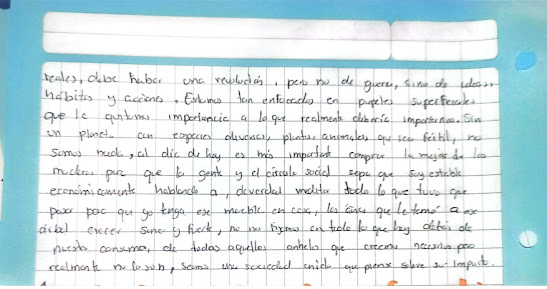 reales, debe haber una revolución, pero no de guerra, sino de ideas,
hábitos y acciones. Estamos tan enfocados en papeles superficiales
que le quitamos importancia a lo que realmente debería importarnos. Sin
un planeta con especies diversas, plantas, animales, que sea fértil, no
somos nada, al día de hoy es más important comprar la mejor de las
muebles para que la gente y el circulo social sepa que soy estable
economicamente hablando a, deverdad meditar todo lo que tuvo que
pasar para que yo tenga ese mueble en casa, los años que le tomó a ese
árbol crecer sano y fuerte, no nos fijamos en todo lo que hay detrás de
nuestro consumo, de todas aquellos anhelo que creemos necesarios pero
realmente no lo son, seamos una sociedad unida que piense sobre su impacto.